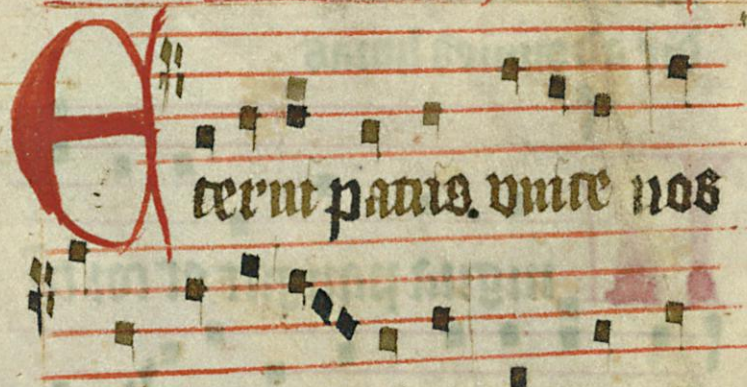 Eterni patris. vnice nos